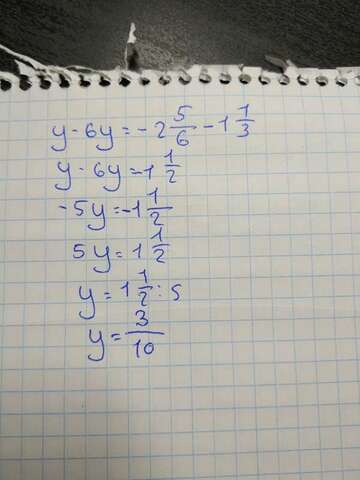 y - 6y = -2 5/6 - 1 1/3
y - 6y = -1 1/2
-5y = -1 1/2
5y = 1 1/2
y = 1 1/2 : 5
y = 3/10